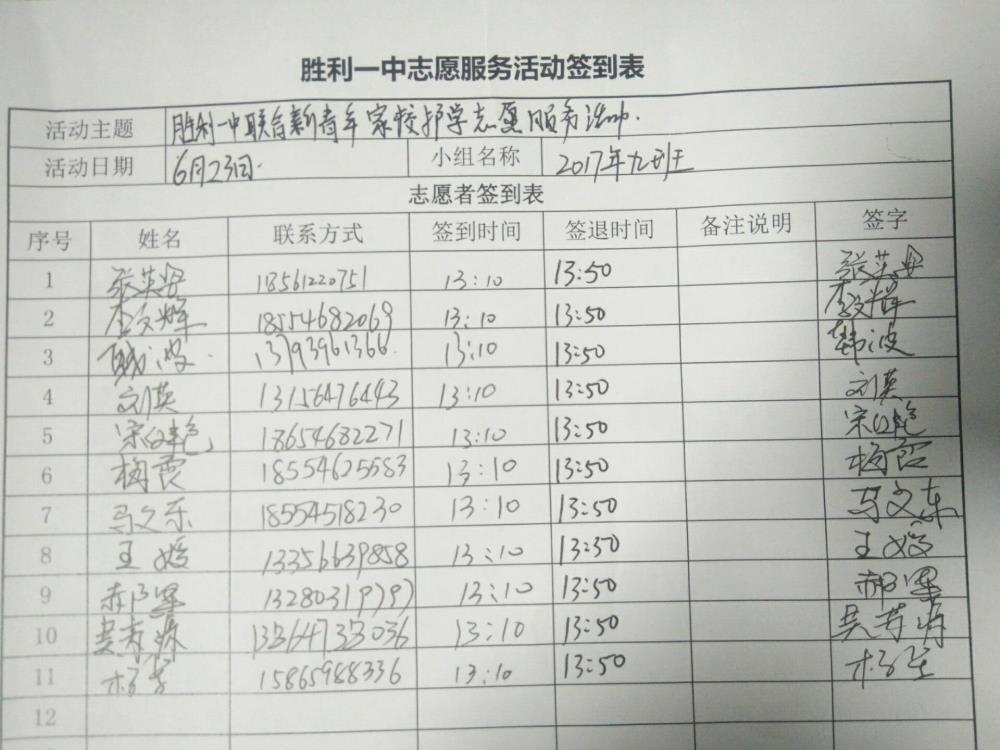 胜利一中志愿服务活动签到表
活动主题 胜利一中联合新青年家校护学志愿服务活动.
活动日期 6月23日. 小组名称 2017年九班
志愿者签到表
序号 姓名 联系方式 签到时间 签退时间 备注说明 签字
1 张英 18561220751 13:10 13:50 张英
2 李文辉 18554682069 13:10 13:50 李文辉
3 韩波 13793961366 13:10 13:50 韩波
4 刘英 13156476443 13:10 13:50 刘英
5 宋艳 18654682271 13:10 13:50 宋艳
6 梅霞 18554625583 13:10 13:50 梅霞
7 马文东 18554518230 13:10 13:50 马文东
8 王 13356639858 13:10 13:50 王
9 郝 13:10 13:50 郝
10 吴秀 13:10 13:50 吴秀
11 杨 15865988336 13:10 13:50 杨
12